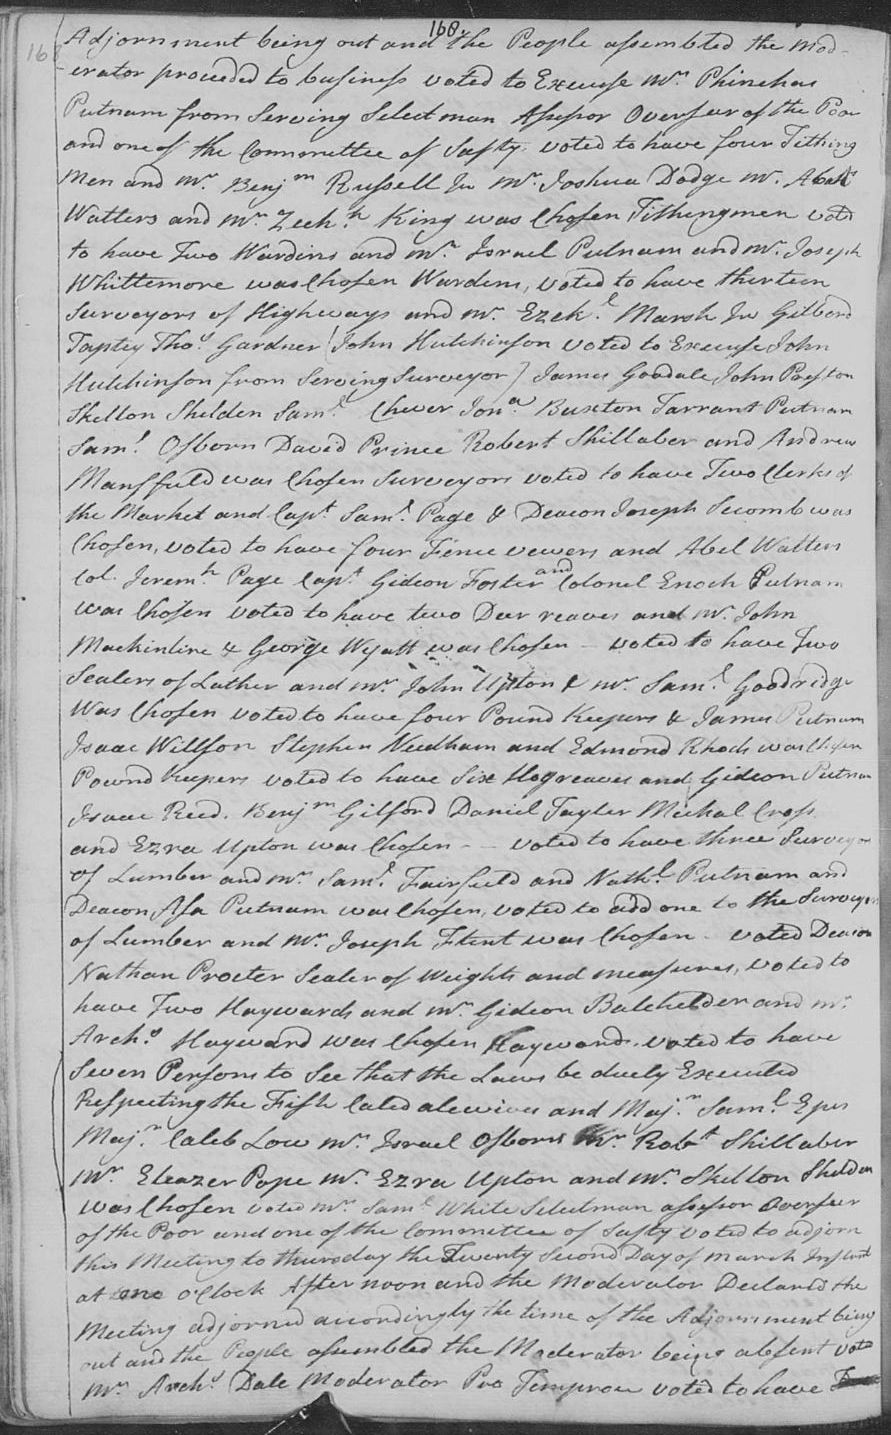 168
168
Adjornment being out and the People assembled the mod-
-erator proceded to business voted to Excuse Mr. Phinehas
Putnam from Serving Selectman Assessor Overseer of the Poor
and one of the Committee of Safty. voted to have four Tithing
Men and Mr. Benjm Russell Jn Mr. Joshua Dodge Mr. Abel
Watters and Mr. Zechh King was Chosen Tithengmen voted
to have Two Wardins and Mr. Israel Putnam and Mr. Joseph
Whittemore was Chosen Wardens, voted to have thirteen
Surveyors of Highways and Mr. Ezekl Marsh Jn Gilbord
Taptey Thos Gardner [John Hutchinson voted to Excuse John
Hutchinson from Serving Surveyor] James Goodale, John Preston
Skelton Shelden Saml Chever Jona Buxton Tarrant Putnam
Saml Osborn David Prince Robert Shillaber and Andrew
Mansfield was Chosen Surveyors voted to have Two Clerks of
the Market and Capt Saml Page & Deacon Joseph Secomb was
Chosen, voted to have four Fence vewers and Abel Watters
Col. Jeremh Page Capt Gideon Foster and Colonel Enoch Putnam
was Chosen voted to have two Deer reaves and Mr. John
Mackintire & George Wyatt was Chosen - voted to have Two
Sealers of Lather and Mr. John Upton & Mr. Saml Goodridge
Was Chosen voted to have four Pound Keepers & James Putnam
Isaac Willson Stephen Needham and Edmond Rhods was Chosen
Pound Keepers voted to have Six Hogreaves and Gideon Putnam
Isaac Reed. Benjm Gilford Daniel Tayler Michal Cross
and Ezra Upton was Chosen - - voted to have three Surveyors
of Lumber and Mr. Saml Fairfield and Nathl Putnam and
Deacon Asa Putnam was Chosen, voted to add one to the Surveyors
of Lumber and Mr. Joseph Flint was Chosen - voted Deacon
Nathan Procter Sealer of Weights and measures, voted to
have Two Haywards and Mr. Gideon Batchelder and Mr.
Archs Hayward was Chosen Haywards. voted to have
Seven Persons to See that the Laws be duely Executed
Respecting the Fish Caled alewives and Majr Saml Epes
Majr Caleb Low Mr. Israel Osborn Mr. Robt Shillaber
Mr. Eleazer Pope Mr. Ezra Upton and Mr. Skelton Shelden
was Chosen voted Mr. Saml White Selectman assessor Overseer
of the Poor and one of the Committee of Safty voted to adjorn
this Meeting to thursday the Twenty Second Day of march Instant
at one o'Clock After noon and the Moderator Declard the
Meeting adjorned accordingly the time of the Adjornment being
out and the People assembled the Moderator being absent voted
Mr. Archs Dale Moderator Pro Temprore voted to have